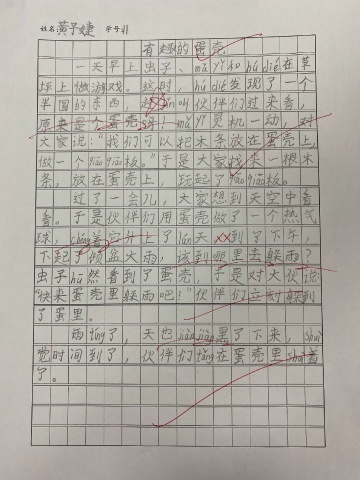 姓名黄子婕 学号31
有趣的蛋壳
一天早上虫子、mǎ yǐ和hú dié在草
坪上做游戏。这时，hú dié发现了一个
半圆的东西，叫伙伴们过来看，
原来是个蛋壳呀！mǎ yǐ灵机一动，对
大家说：“我们可以把木条放在蛋壳上，
做一个qiāo qiāo板。”于是大家找来一根木
条，放在蛋壳上，玩起了qiāo qiāo板。
过了一会儿，大家想到天空中看
看。于是伙伴们用蛋壳做了一个热气
球，chéng着它升上了lán天。到了下午，
下起了倾盆大雨，该到哪里去躲雨？
虫子hū然看到了蛋壳，于是对大伙说
“快来蛋壳里躲雨吧！”伙伴们立刻躲到
了蛋里。
雨tíng了，天也jiàn jiàn黑了下来，shuì
觉时间到了，伙伴们tǎng在蛋壳里shuì着
了。